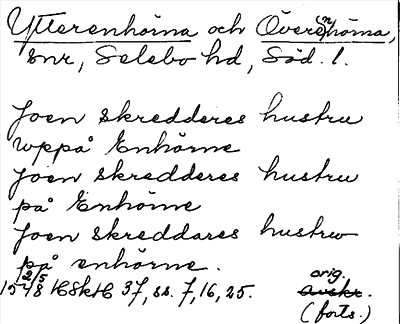 Ytterenhörna och Övere(n)hörna,
snr, Selebo hd, Söd. l.
Joen skredderes hustru
uppå Enhörne
Joen skredderes hustru
på Enhörne
Joen skreddares hustrw
på enhörne.
2/5 orig.
1548 HSkH 37, ss. 7, 16, 25. Avskr.
(forts.)